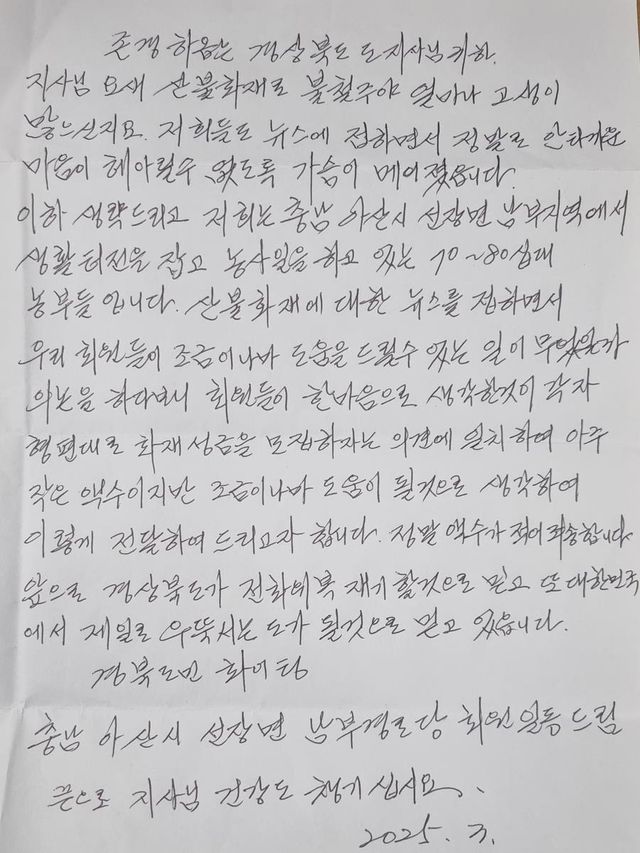 존경 하옵는 경상북도 도지사님 귀하.
지사님 요새 산불화재로 불철주야 얼마나 고생이
많으신지요. 저희들도 뉴스에 접하면서 정말로 안타까운
마음이 헤아릴수 없도록 가슴이 메어졌습니다.
이하 생략드리고 저희는 충남 아산시 선장면 남부지역에서
생활 터전을 잡고 농사일을 하고 있는 70~80십대
농부들 입니다. 산불화재에 대한 뉴스를 접하면서
우리 회원들이 조금이나마 도움을 드릴수 있는 일이 무엇일까
의논을 하다보니 회원들이 한마음으로 생각한것이 각자
형편대로 화재성금을 모집하자는 의견에 일치하여 아주
작은 액수이지만 조금이나마 도움이 될것으로 생각하여
이렇게 전달하여 드리고자 합니다. 정말 액수가 적어 죄송합니다
앞으로 경상북도가 전화위복 재기할것으로 믿고 또 대한민국
에서 제일로 우뚝서는 도가 될것으로 믿고 있습니다.
경북도민 화이팅
충남 아산시 선장면 남부경로당 회원일동 드림
끝으로 지사님 건강도 챙기십시요.
2025. 3.